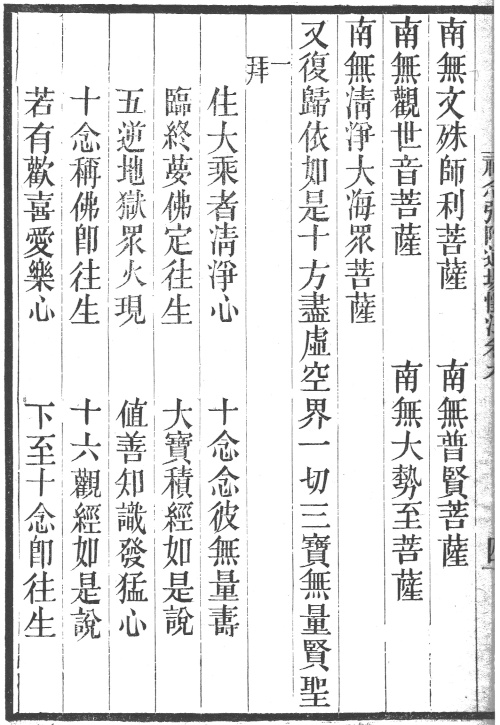 南無文殊師利菩薩　南無普賢菩薩
南無觀世音菩薩　南無大勢至菩薩
南無清淨大海眾菩薩
又復歸依如是十方盡虛空界一切三寶無量賢聖
一拜
住大乘者清淨心　十念念彼無量壽
臨終夢佛定往生　大寶積經如是說
五逆地獄眾火現　值善知識發猛心
十念稱佛卽往生　十六觀經如是說
若有歡喜愛樂心　下至十念卽往生